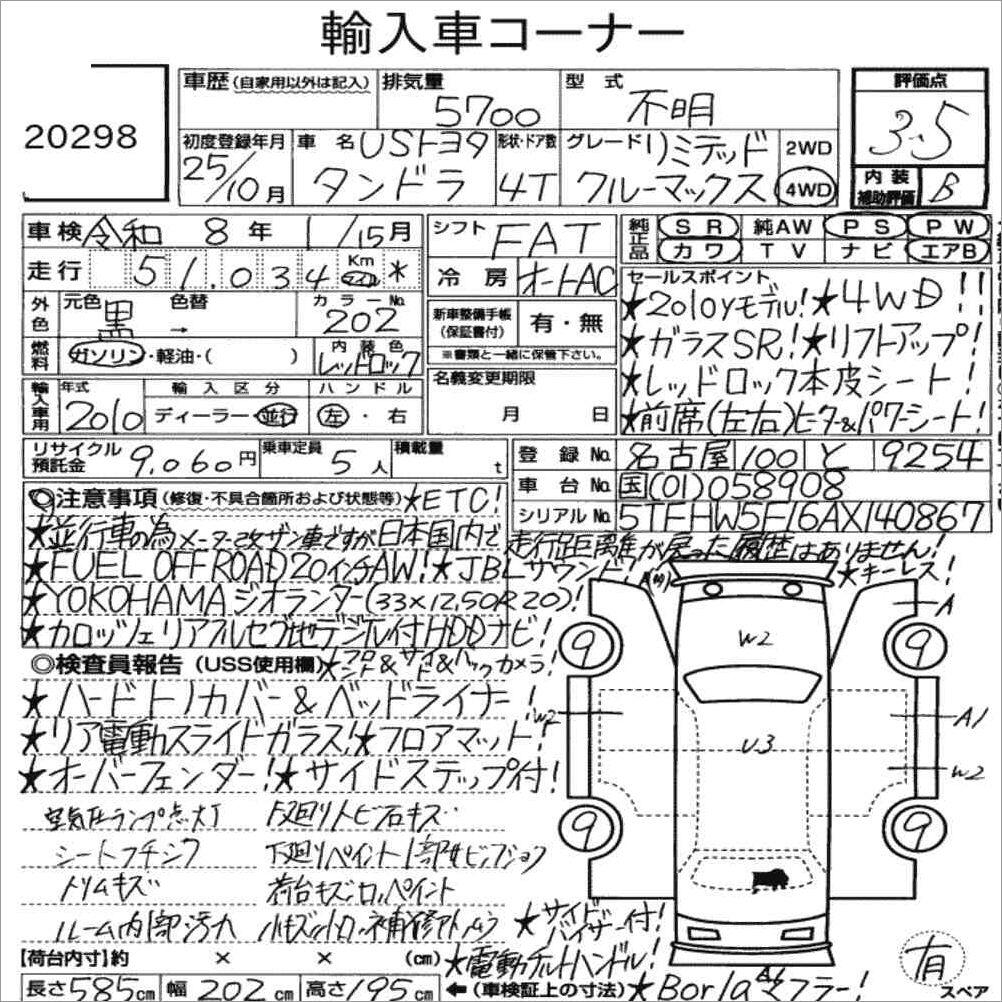 輸入車コーナー
20298
車歴(自家用以外は記入) 排気量 5700 型式 不明 評価点 3.5
初度登録年月 25/10月 車名 USトヨタ タンドラ 形状・ドア数 4T グレード リミテッド クルーマックス 2WD 4WD 内装補助評価 B
車検 令和 8年 1/15月 シフト FAT 純正品 SR 純AW PS PW
走行 51.034 Km マイル * 冷房 オートAC カワ TV ナビ エアB
外色 元色 黒 色替 → カラーNo. 202 新車整備手帳(保証書付) 有・無
※書類と一緒に保管下さい。
燃料 ガソリン・軽油・( ) 内装色 レッドロック
セールスポイント
★2010yモデル!★4WD!!
★ガラスSR!★リフトアップ!
★レッドロック本皮シート!
★前席(左右)ヒーター&パワーシート!
輸入車用 年式 2010 輸入区分 ディーラー・並行 ハンドル 左・右 名義変更期限 月 日
リサイクル預託金 9,060円 乗車定員 5人 積載量 t
登録No. 名古屋 100 と 9254
車台No. 国(01)058908
シリアルNo. 5TFHW5F16AX140867
◎注意事項(修復・不具合箇所および状態等)★ETC!
★並行車の為メーター改ザン車ですが日本国内で走行距離が戻った履歴はありません!
★FUEL OFFROAD20インチAW!★JBLサウンド!★キーレス!
★YOKOHAMAジオランダー(33×12.50R20)!
★カロッツェリアフルセグ地デジ付HDDナビ!
◎検査員報告(USS使用欄)★フロント&サイド&バックカメラ!
★ハードトノカバー&ベッドライナー!
★リア電動スライドガラス!★フロアマット!
★オーバーフェンダー!★サイドステップ付!
空気圧ランプ点灯 下廻りトビ石キズ
シートフチシワ 下廻りペイント1部
トリムキズ 荷台キズ ペイント
ルーム内部汚れ
★サイドバイザー付!
★電動チルトハンドル!
★Borlaマフラー!
A
9 9
W2
W2 A1
U3
W2
9 9
有
スペア
【荷台内寸】約 × × (cm)
長さ585cm 幅202cm 高さ195cm ←(車検証上の寸法)